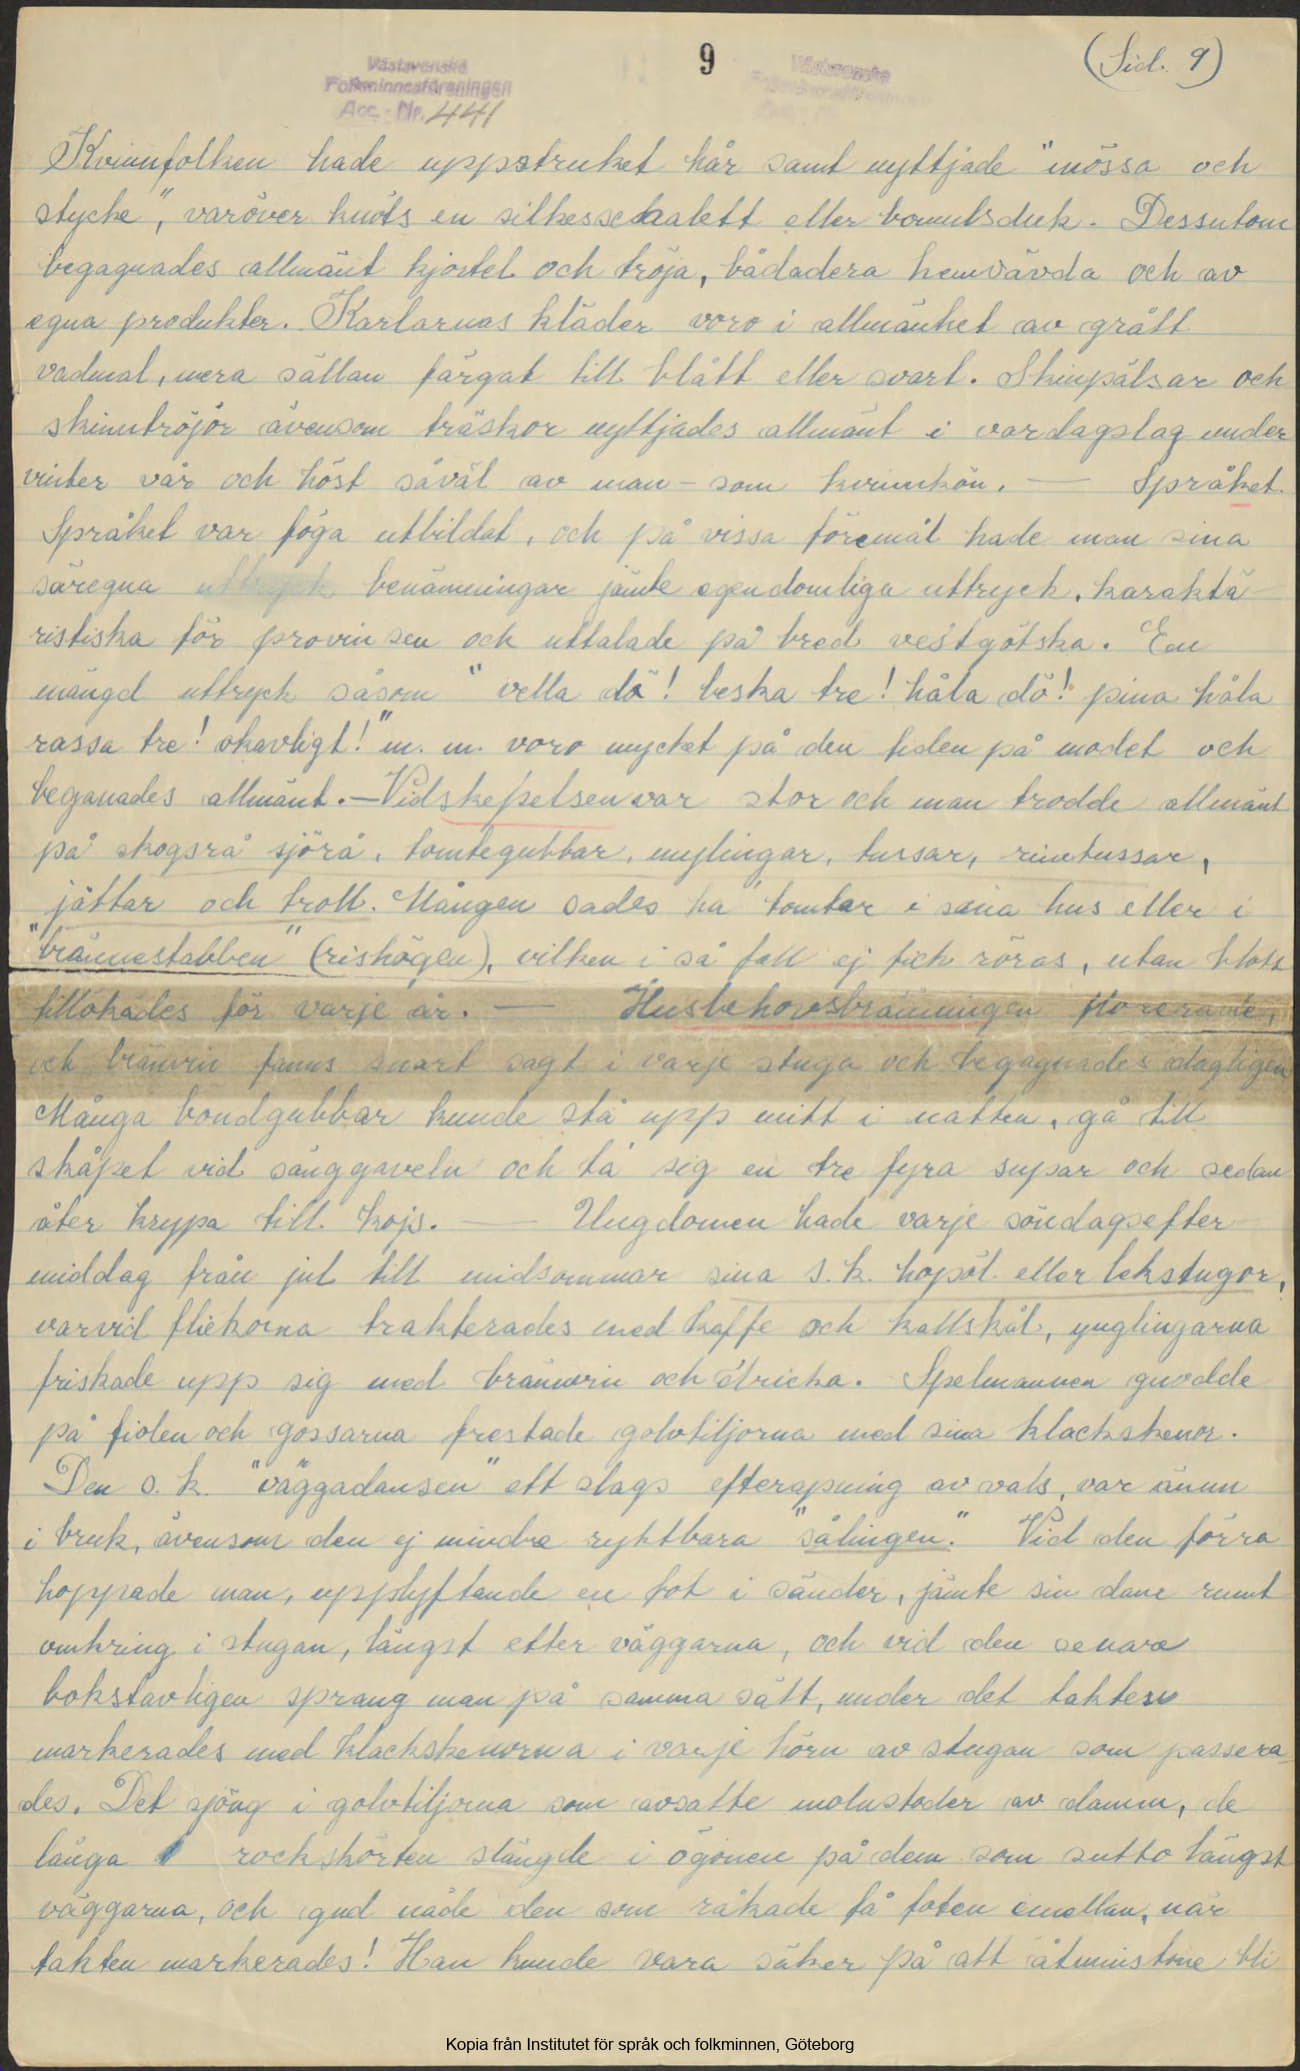 9
(Sid. 9)
Västsvenska
Folkminnesföreningen
Acc.-Nr. 441
Västsvenska
Kvinnfolken hade uppstruket hår samt nyttjade "mössa och
stycke", varöver knöts en silkesschalett eller bomulsduk. Dessutom
begagnades allmänt kjortel och tröja, bådadera hemvävda och av
egna produkter. Karlarnas kläder voro i allmänhet av grått
vadmal, mera sällan färgat till blått eller svart. Skinpälsar och
skinntröjor ävensom träskor nyttjades allmänt i vardagslag under
vinter vår och höst såväl av man- som kvinnkön. — Språket.
Språket var föga utbildat, och på vissa föremål hade man sina
säregna uttryck benämningar jämte egendomliga uttryck, karaktä-
ristiska för provinsen och uttalade på bred vestgötska. En
mängd uttryck såsom "vella dä! beska tre! håla dö! pina håla
rassa tre! okavligt!" m. m. voro mycket på den tiden på modet och
beganades allmänt.—Vidskepelsen var stor och man trodde allmänt
på skogsrå sjörå, tomtegubbar, mylingar, tussar, rimtussar,
jättar och troll. Mången sades ha tomtar i sina hus eller i
"brännestabben" (rishögen), vilken i så fall ej fick röras, utan blott
tillökades för varje år. — Husbehovsbränningen florerade,
och brännvin fanns snart sagt i varje stuga och begagnades dagligen
Många bondgubbar kunde stå upp mitt i natten, gå till
skåpet vid sänggaveln och ta sig en tre fyra supar och sedan
åter krypa till kojs. — Ungdomen hade varje söndagsefter-
middag från jul till midsommar sina s.k. hopöl eller lekstugor,
varvid flickorna trakterades med kaffe och kallskål, ynglingarna
friskade upp sig med brännvin och dricka. Spelmannen gnodde
på fiolen och gossarna frestade golvtiljorna med sina klackskenor.
Den s.k. "väggadansen" ett slags efterapning av vals, var ännu
i bruk, ävensom den ej mindre ryktbara "sälingen". Vid den förra
hoppade man, upplyftande en fot i sänder, jämte sin dam runt
omkring i stugan, längst efter väggarna, och vid den senare
bokstavligen sprang man på samma sätt, under det takten
markerades med klackskenorna i varje hörn av stugan som passera-
des. Det sjöng i golvtiljorna som avsatte molnstoder av damm, de
långa rockskörten slängde i ögonen på dem som sutto längst
väggarna, och gud nåde den som råkade få foten emellan, när
takten markerades! Han kunde vara säker på att åtminstone bli
Kopia från Institutet för språk och folkminnen, Göteborg